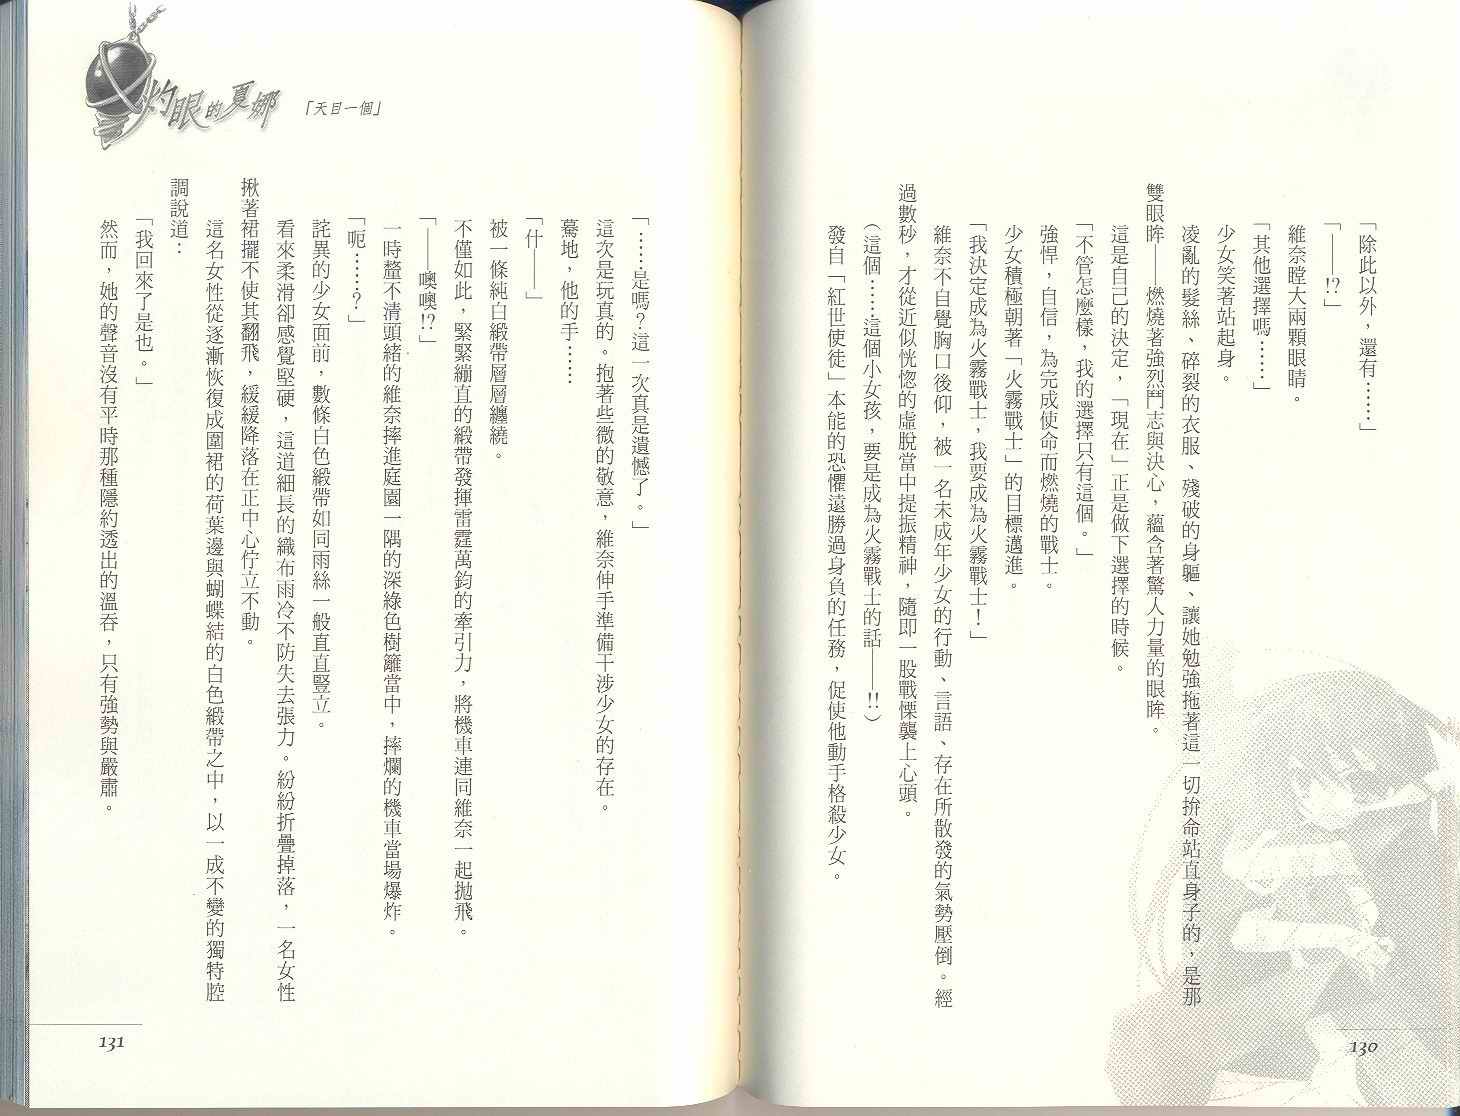 「除此以外，還有……」
「——!?」
維奈瞠大兩顆眼睛。
「其他選擇嗎……」
少女笑著站起身。
凌亂的髮絲、碎裂的衣服、殘破的身軀、讓她勉強拖著這一切拚命站直身子的，是那
雙眼眸——燃燒著強烈鬥志與決心，蘊含著驚人力量的眼眸。
這是自己的決定，「現在」正是做下選擇的時候。
「不管怎麼樣，我的選擇只有這個。」
強悍，自信，為完成使命而燃燒的戰士。
少女積極朝著「火霧戰士」的目標邁進。
「我決定成為火霧戰士，我要成為火霧戰士！」
維奈不自覺胸口後仰，被一名未成年少女的行動、言語、存在所散發的氣勢壓倒。經
過數秒，才從近似恍惚的虛脫當中提振精神，隨即一股戰慄襲上心頭。
（這個……這個小女孩，要是成為火霧戰士的話——!!）
發自「紅世使徒」本能的恐懼遠勝過身負的任務，促使他動手格殺少女。
130
灼眼的夏娜
「天目一個」
「……是嗎？這一次真是遺憾了。」
這次是玩真的。抱著些微的敬意，維奈伸手準備干涉少女的存在。
驀地，他的手……
「什——」
被一條純白緞帶層層纏繞。
不僅如此，緊緊繃直的緞帶發揮雷霆萬鈞的牽引力，將機車連同維奈一起拋飛。
「——噢噢!?」
一時釐不清頭緒的維奈摔進庭園一隅的深綠色樹籬當中，摔爛的機車當場爆炸。
「呃……？」
詫異的少女面前，數條白色緞帶如同雨絲一般直直豎立。
看來柔滑卻感覺堅硬，這道細長的織布雨冷不防失去張力。紛紛折疊掉落，一名女性
揪著裙擺不使其翻飛，緩緩降落在正中心佇立不動。
這名女性從逐漸恢復成圍裙的荷葉邊與蝴蝶結的白色緞帶之中，以一成不變的獨特腔
調說道：
「我回來了是也。」
然而，她的聲音沒有平時那種隱約透出的溫吞，只有強勢與嚴肅。
131